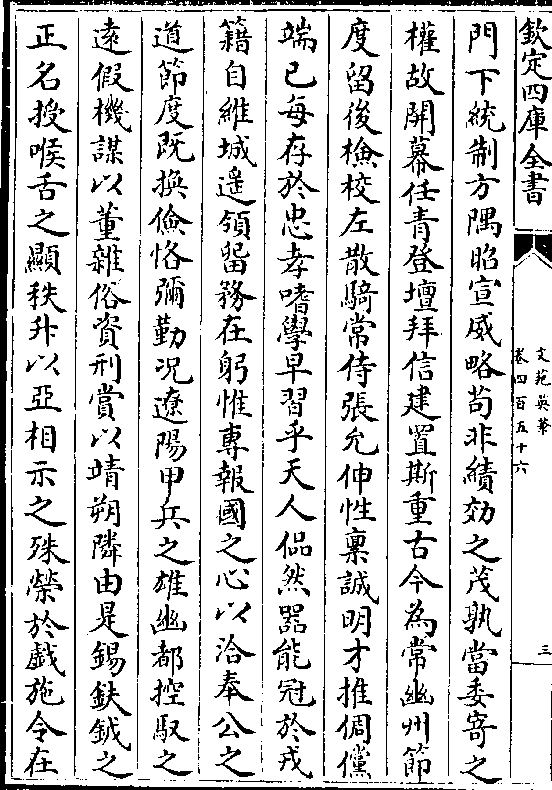 欽定四庫全書
文苑英華
卷四百五十六
三
門下統制方隅昭宣威略苟非績効之茂孰當委寄之
權故開幕任青登壇拜信建置斯重古今為常幽州節
度留後檢校左散騎常侍張允伸性稟誠明才推倜儻
端已每存於忠孝嗜學早習乎天人偘然器能冠於戎
籍自維城遥領留務在躬惟專報國之心以洽奉公之
道節度既換儉恪彌勤况遼陽甲兵之雄幽都控馭之
遠假機謀以董雜俗資刑賞以靖朔隣由是錫鈇鉞之
正名授喉舌之顯秩升以亞相示之殊榮於戲施令在